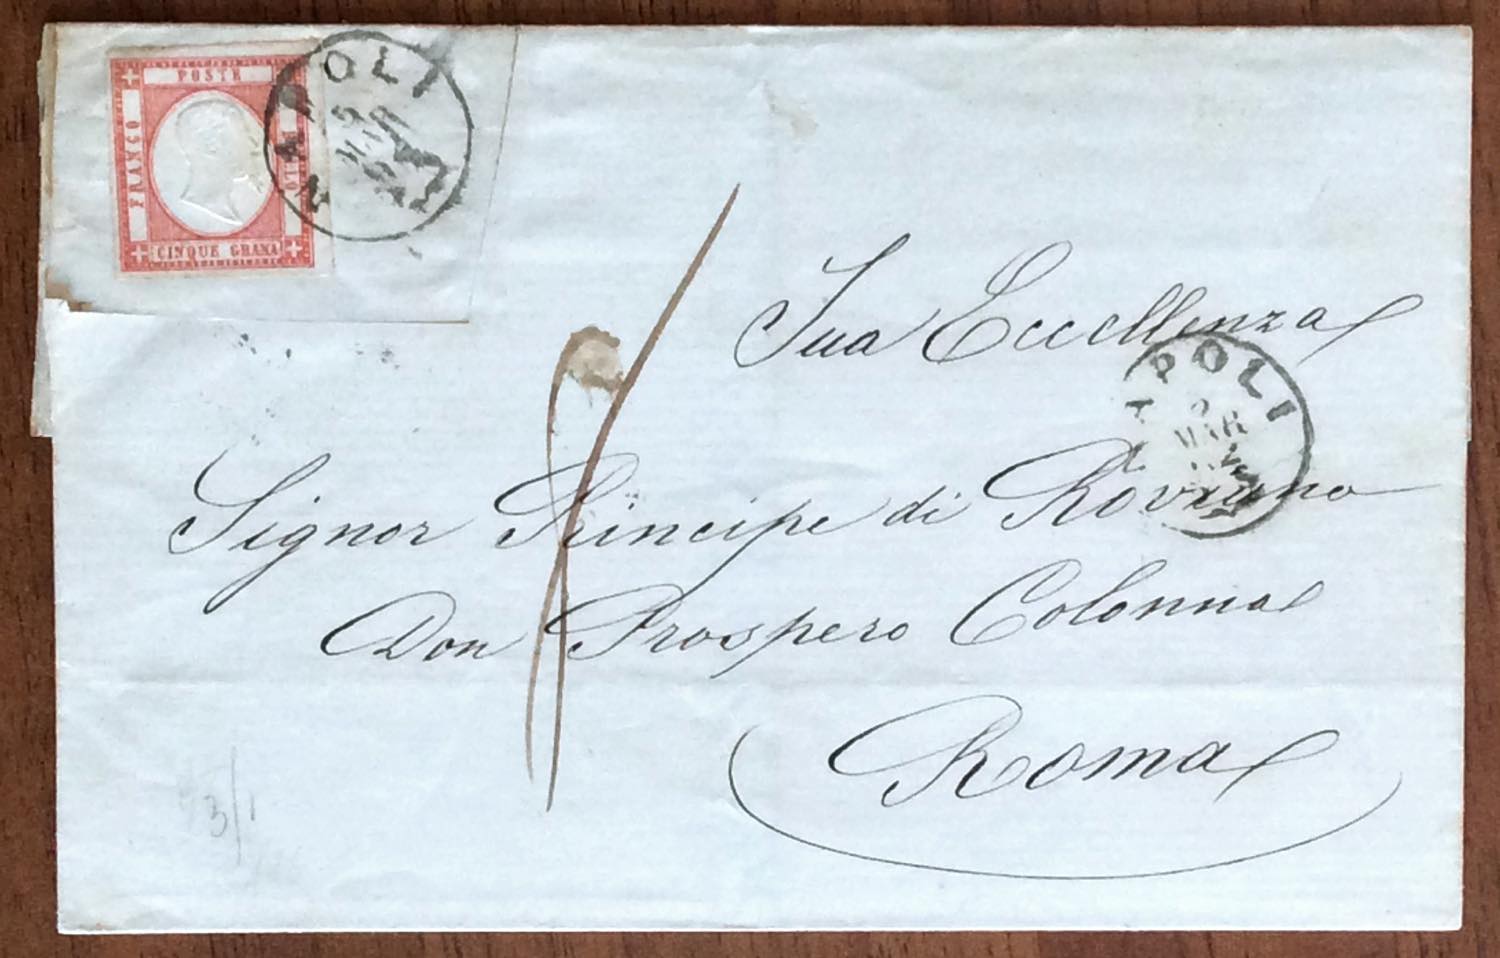 POSTE
FRANCO
BOLLO
CINQUE GRANA
NAPOLI
MAR
Sua Eccellenza
APOLI
2
MAR
Signor Principe di Roviano
Don Prospero Colonna
Roma
3/1